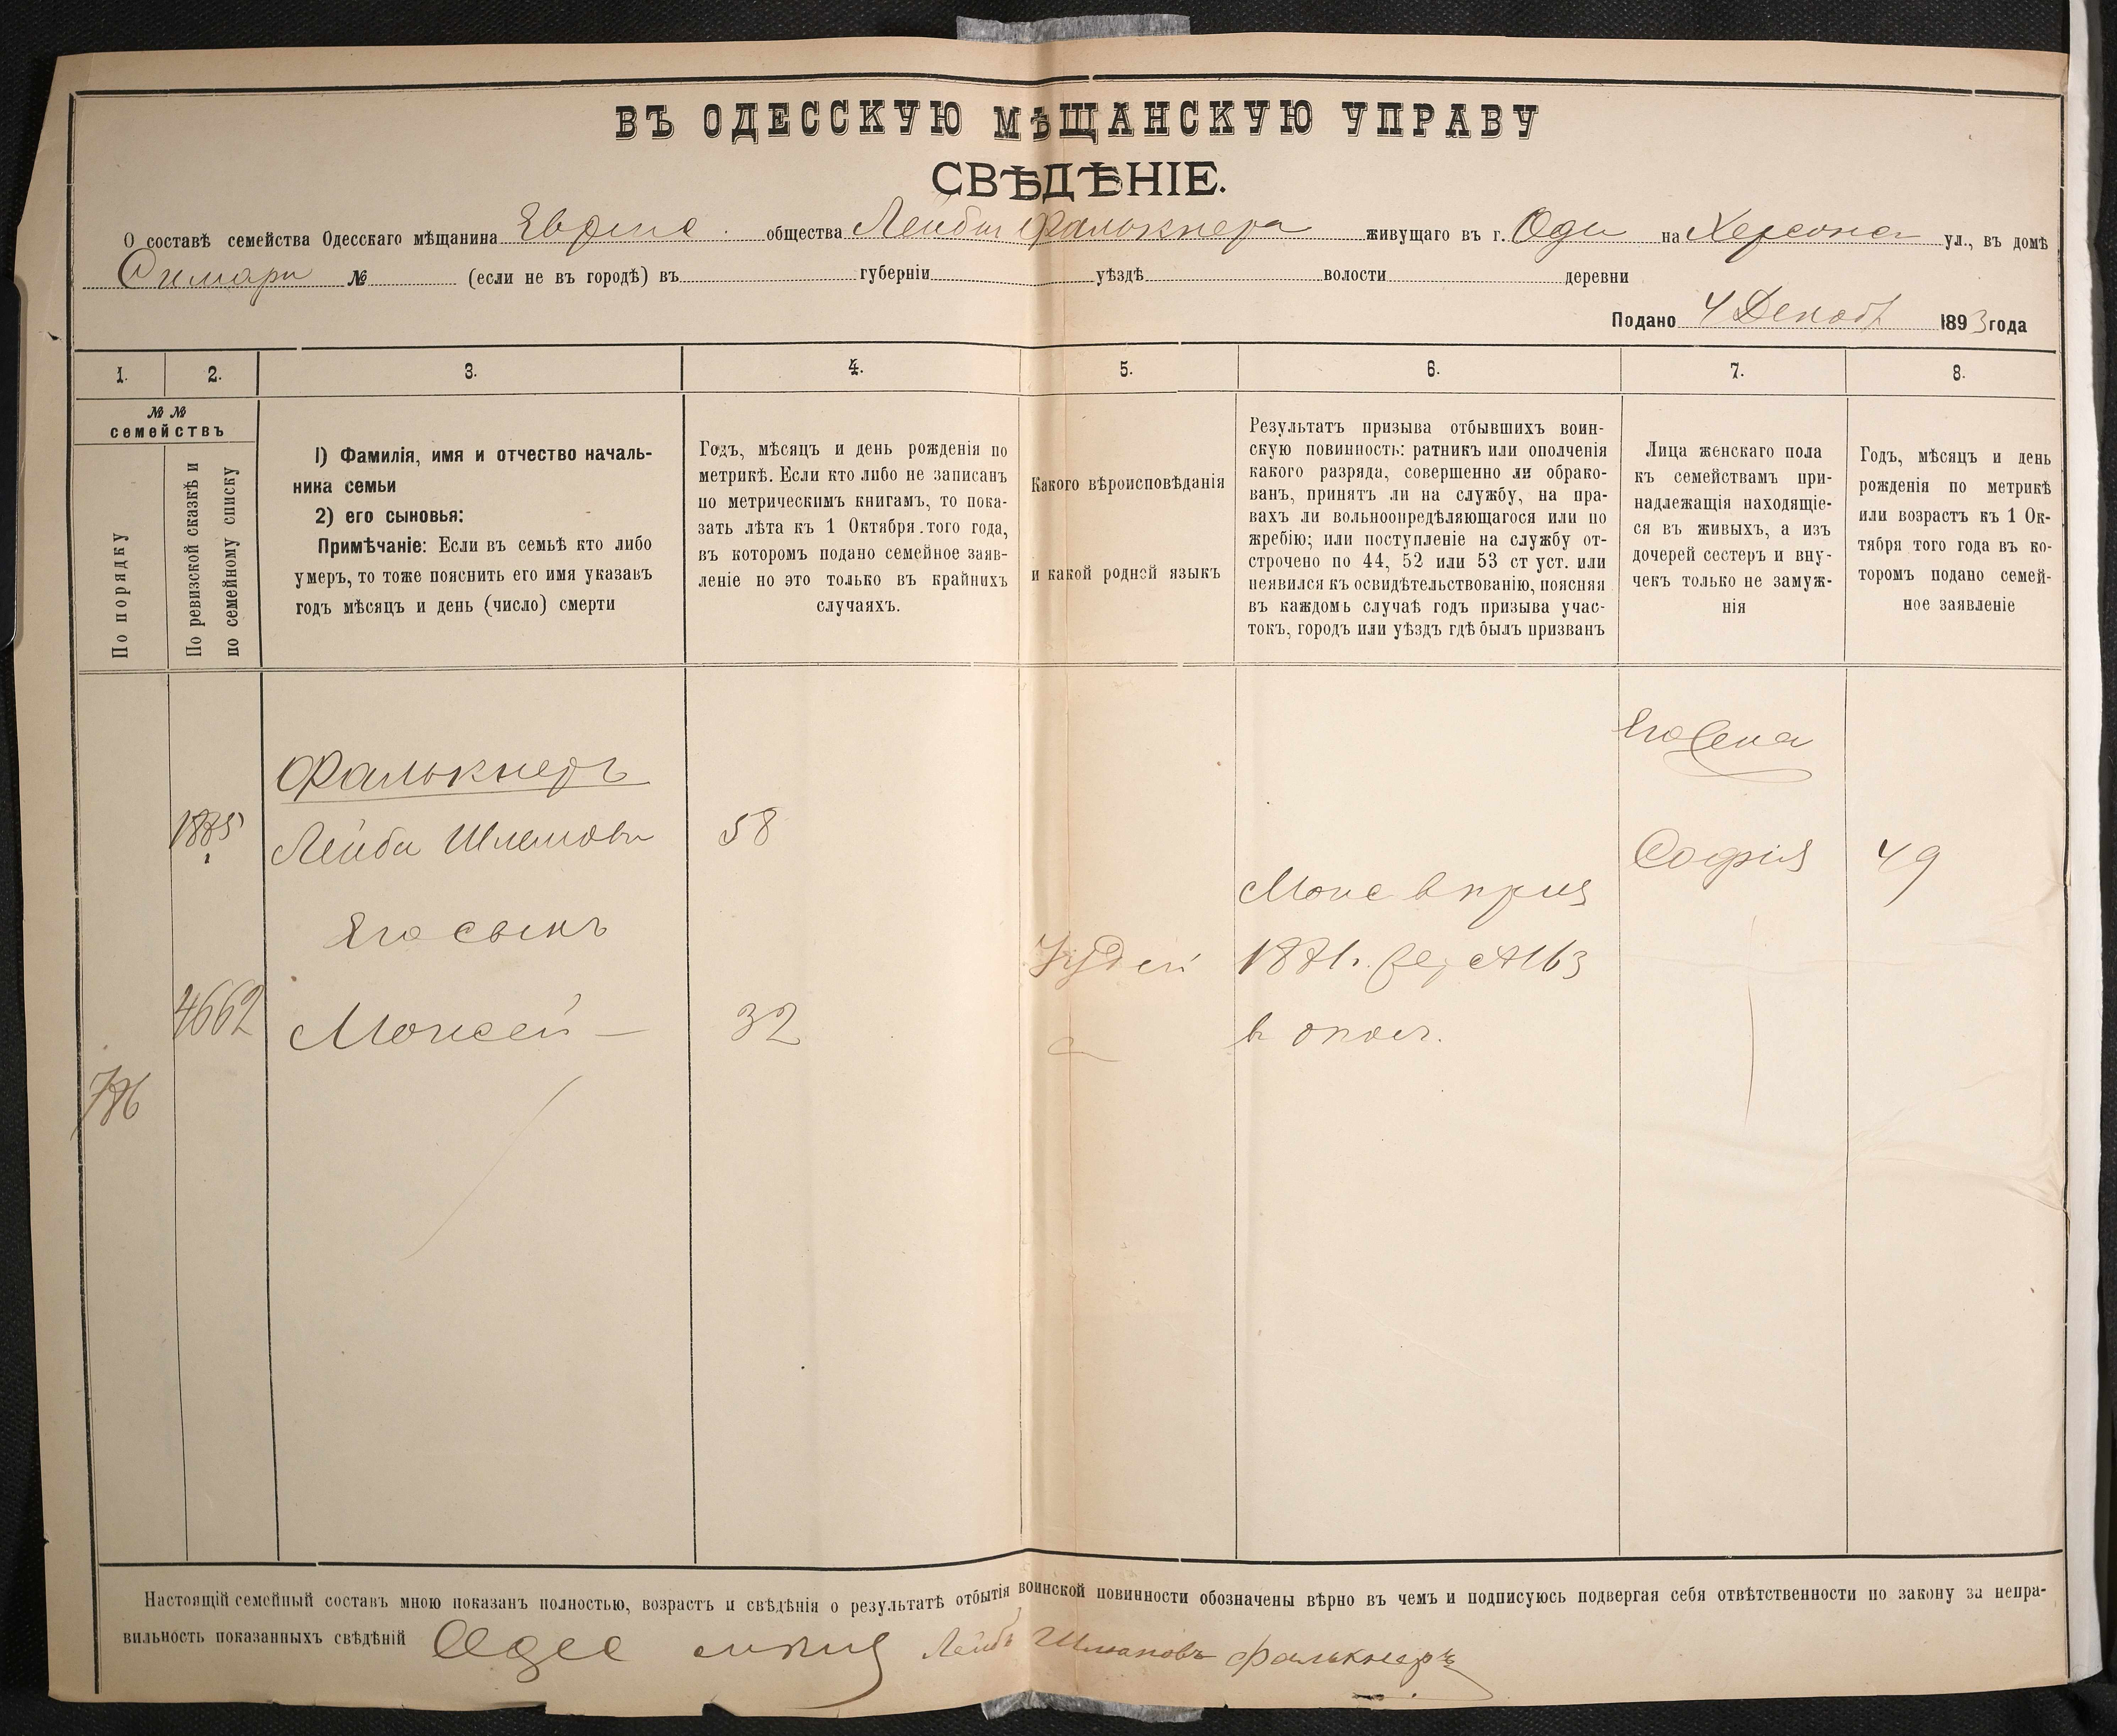 ВЪ ОДЕССКУЮ МѢЩАНСКУЮ УПРАВУ
СВѢДѢНІЕ.
О составѣ семейства Одесскаго мѣщанина Еврейс. общества Лейбы Фалькнера живущаго въ г. Оде на Херсонс ул., въ домѣ
№ (если не въ городѣ) въ губерніи уѣздѣ волости деревни
Подано 4 Декаб 1893 года
1. 2. 3. 4. 5. 6. 7. 8.
№ №
семействъ
По порядку
По ревизской сказкѣ и
по семейному списку
1) Фамилія, имя и отчество началь-
ника семьи
2) его сыновья:
Примѣчаніе: Если въ семьѣ кто либо
умеръ, то тоже пояснить его имя указавъ
годъ мѣсяцъ и день (число) смерти
Годъ, мѣсяцъ и день рожденія по
метрикѣ. Если кто либо не записанъ
по метрическимъ книгамъ, то пока-
зать лѣта къ 1 Октября того года,
въ которомъ подано семейное заяв-
леніе но это только въ крайнихъ
случаяхъ.
Какого вѣроисповѣданія
и какой родной языкъ
Результатъ призыва отбывшихъ воин-
скую повинность: ратникъ или ополченія
какого разряда, совершенно ли обрако-
ванъ, принятъ ли на службу, на пра-
вахъ ли вольноопредѣляющагося или по
жребію; или поступленіе на службу от-
строчено по 44, 52 или 53 ст уст. или
неявился къ освидѣтельствованію, поясняя
въ каждомъ случаѣ годъ призыва учас-
токъ, городъ или уѣздъ гдѣ былъ призванъ
Лица женскаго пола
къ семействамъ при-
надлежащія находящіе-
ся въ живыхъ, а изъ
дочерей сестеръ и вну-
чекъ только не замуж-
нія
Годъ, мѣсяцъ и день
рожденія по метрикѣ
или возрастъ къ 1 Ок-
тября того года въ ко-
торомъ подано семей-
ное заявленіе
Фалькнеръ
Лейба Шлемовъ 58
Его сынъ
4662 Моисей 32
Іудей
1881
в опол.
Его жена
Софія 49
Настоящій семейный составъ мною показанъ полностью, возрастъ и свѣдѣнія о результатѣ отбытія воинской повинности обозначены вѣрно въ чемъ и подписуюсь подвергая себя отвѣтственности по закону за непра-
вильность показанныхъ свѣдѣній Одес мѣщ Лейбъ Шлиомовъ Фалькнеръ